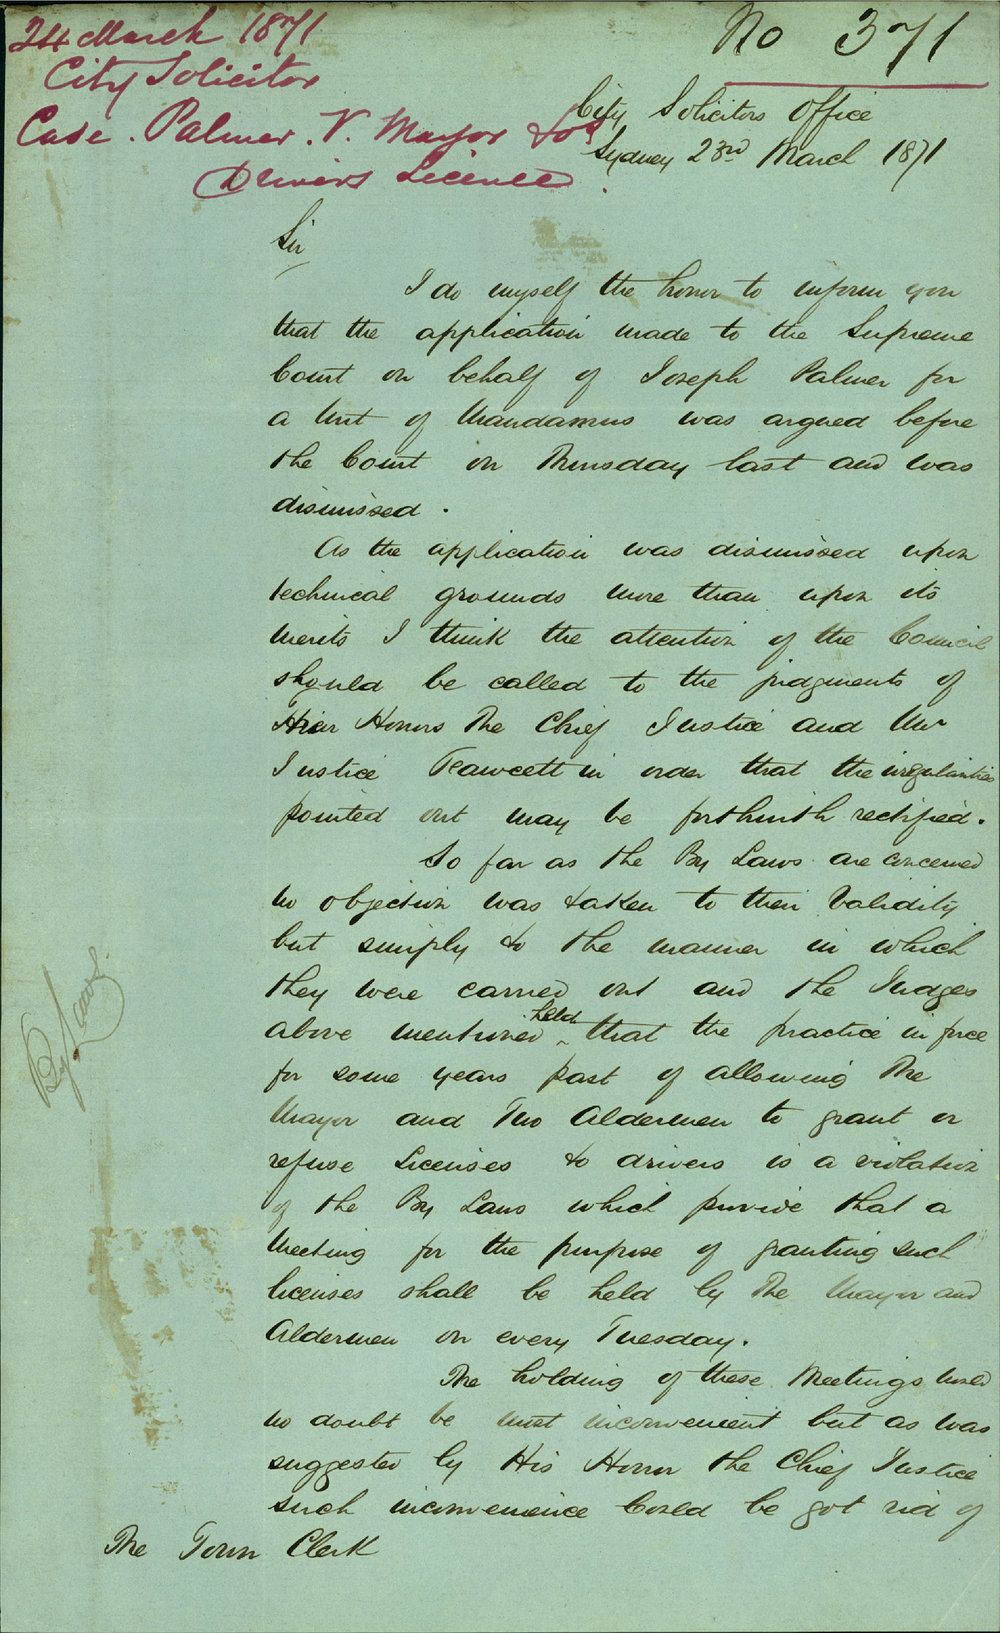 24 March 1871
City Solicitor
Case. Palmer. V. Mayor &c
Drivers Licence.
No 371
City Solicitors Office
Sydney 23rd March 1871
Sir
I do myself the honor to inform you
that the application made to the Supreme
Court on behalf of Joseph Palmer for
a Writ of Mandamus was argued before
the Court on Thursday last and was
dismissed.
As the application was dismissed upon
technical grounds more than upon its
merits I think the attention of the Council
should be called to the judgments of
Their Honors The Chief Justice and Mr
Justice Feawcett in order that the irregularities
pointed out may be forthwith rectified.
So far as the By Laws are concerned
no objection was taken to their Validity
but simply to the manner in which
they were carried out and the Judges
above mentioned held that the practice in force
for some years past of allowing The
Mayor and Two Aldermen to grant or
refuse Licenses to drivers is a violation
of the By Laws which provide that a
Meeting for the purpose of granting such
licenses shall be held by The Mayor and
Aldermen on every Tuesday.
The holding of these Meetings would
no doubt be most inconvenient but as was
suggested by His Honor the Chief Justice
such inconvenience Could be got rid of
The Town Clerk
By Laws.